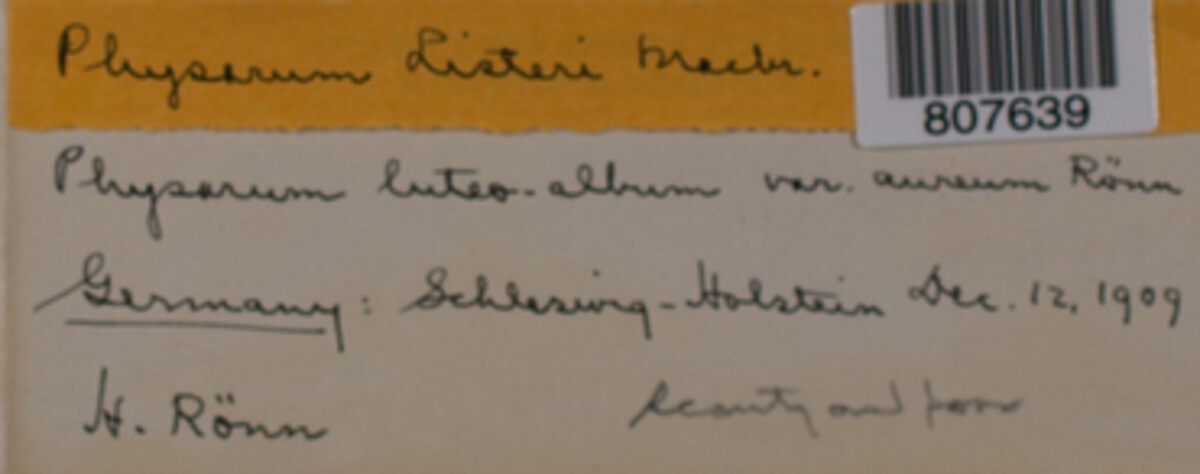 Physarum Listeri Macbr.
807639
Physarum luteo-album var. aureum Rönn
Germany: Schleswig-Holstein Dec. 12, 1909
H. Rönn
Scanty and poor